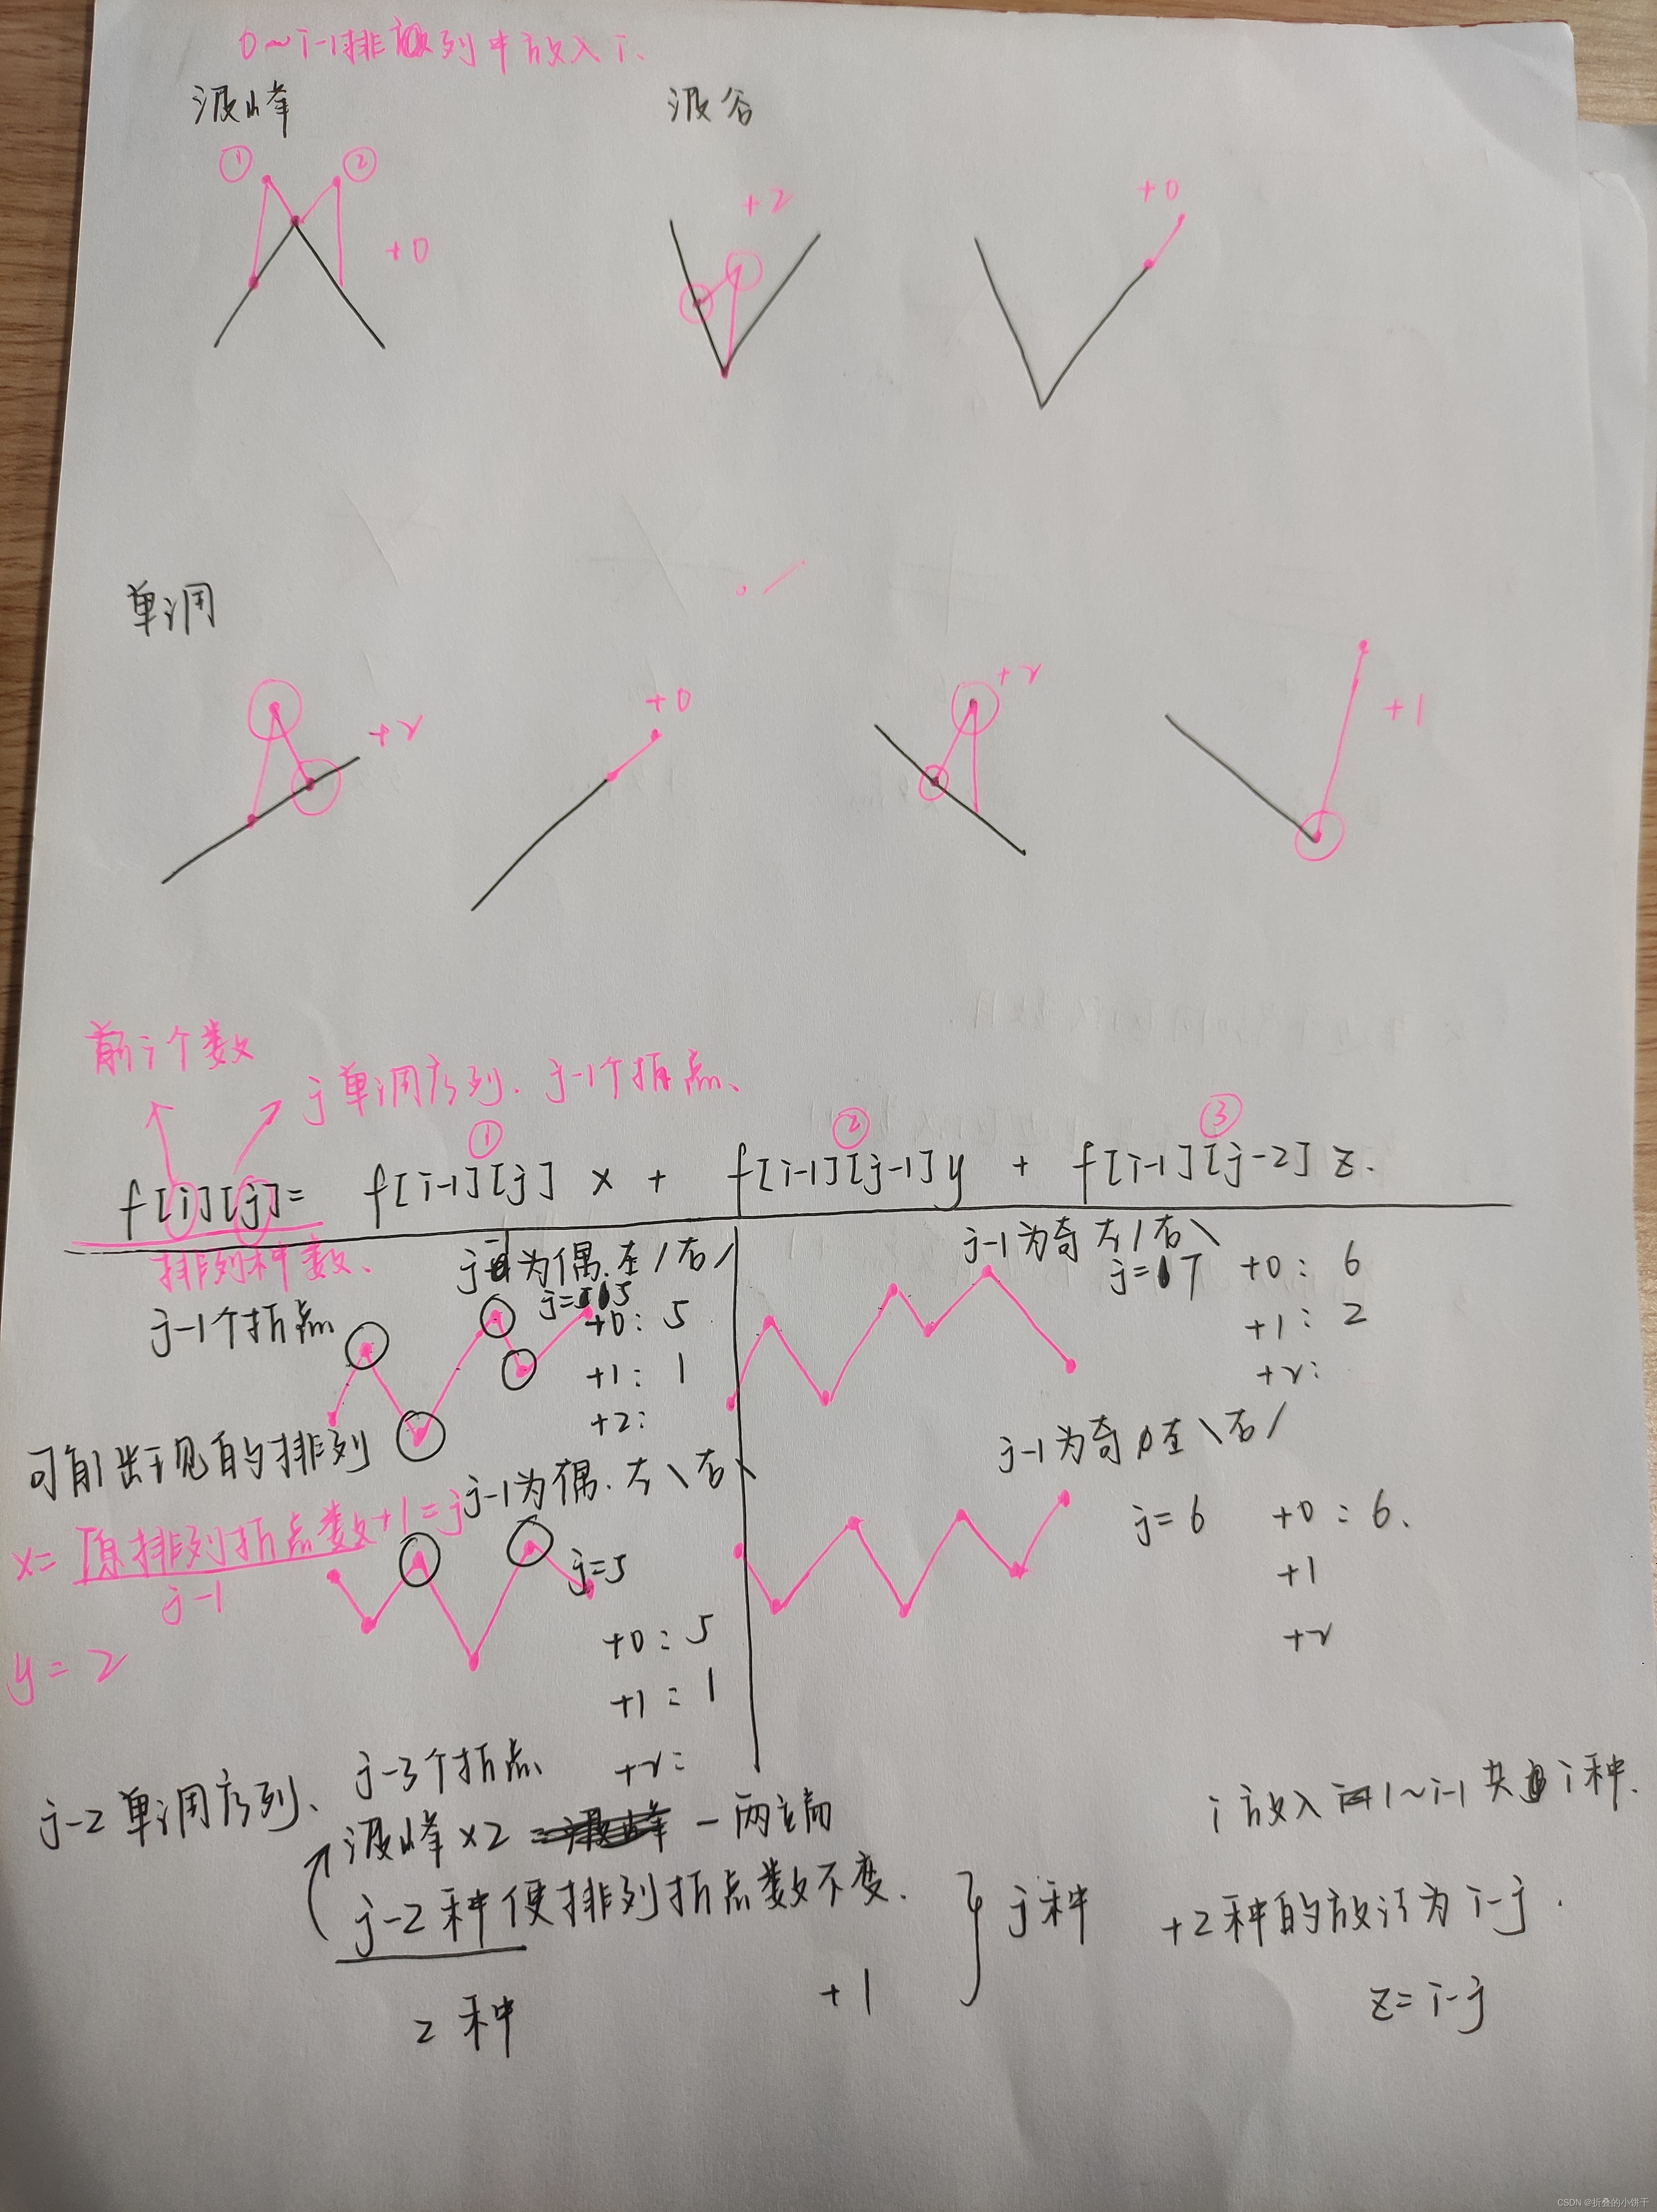 0~i-1排列中放入i.
波峰
波谷
① ②
+0
+2
+0
单调
+2
+0
+2
+1
前i个数
j单调序列. j-1个折点、
① ② ③
f[i][j]= f[i-1][j] x + f[i-1][j-1]y + f[i-1][j-2] z.
排列种数、
j-1个折点
j-1为偶.左/右/
j=5
+0: 5
+1: 1
+2:
j-1为奇 左/右\
j=7
+0: 6
+1: 2
+2:
可能出现的排列
x=原排列折点数+1=j
j-1
y=2
j-1为偶.左\右\
j=5
+0: 5
+1: 1
+2:
j-1为奇 左\右/
j=6
+0: 6.
+1
+2
j-2单调序列、j-3个折点
波峰x2 -两端
j-2种使排列折点数不变.
2种 +1
} j种
i放入1~i-1共i种.
+2种的放法为i-j.
z=i-j
CSDN @折叠的小饼干